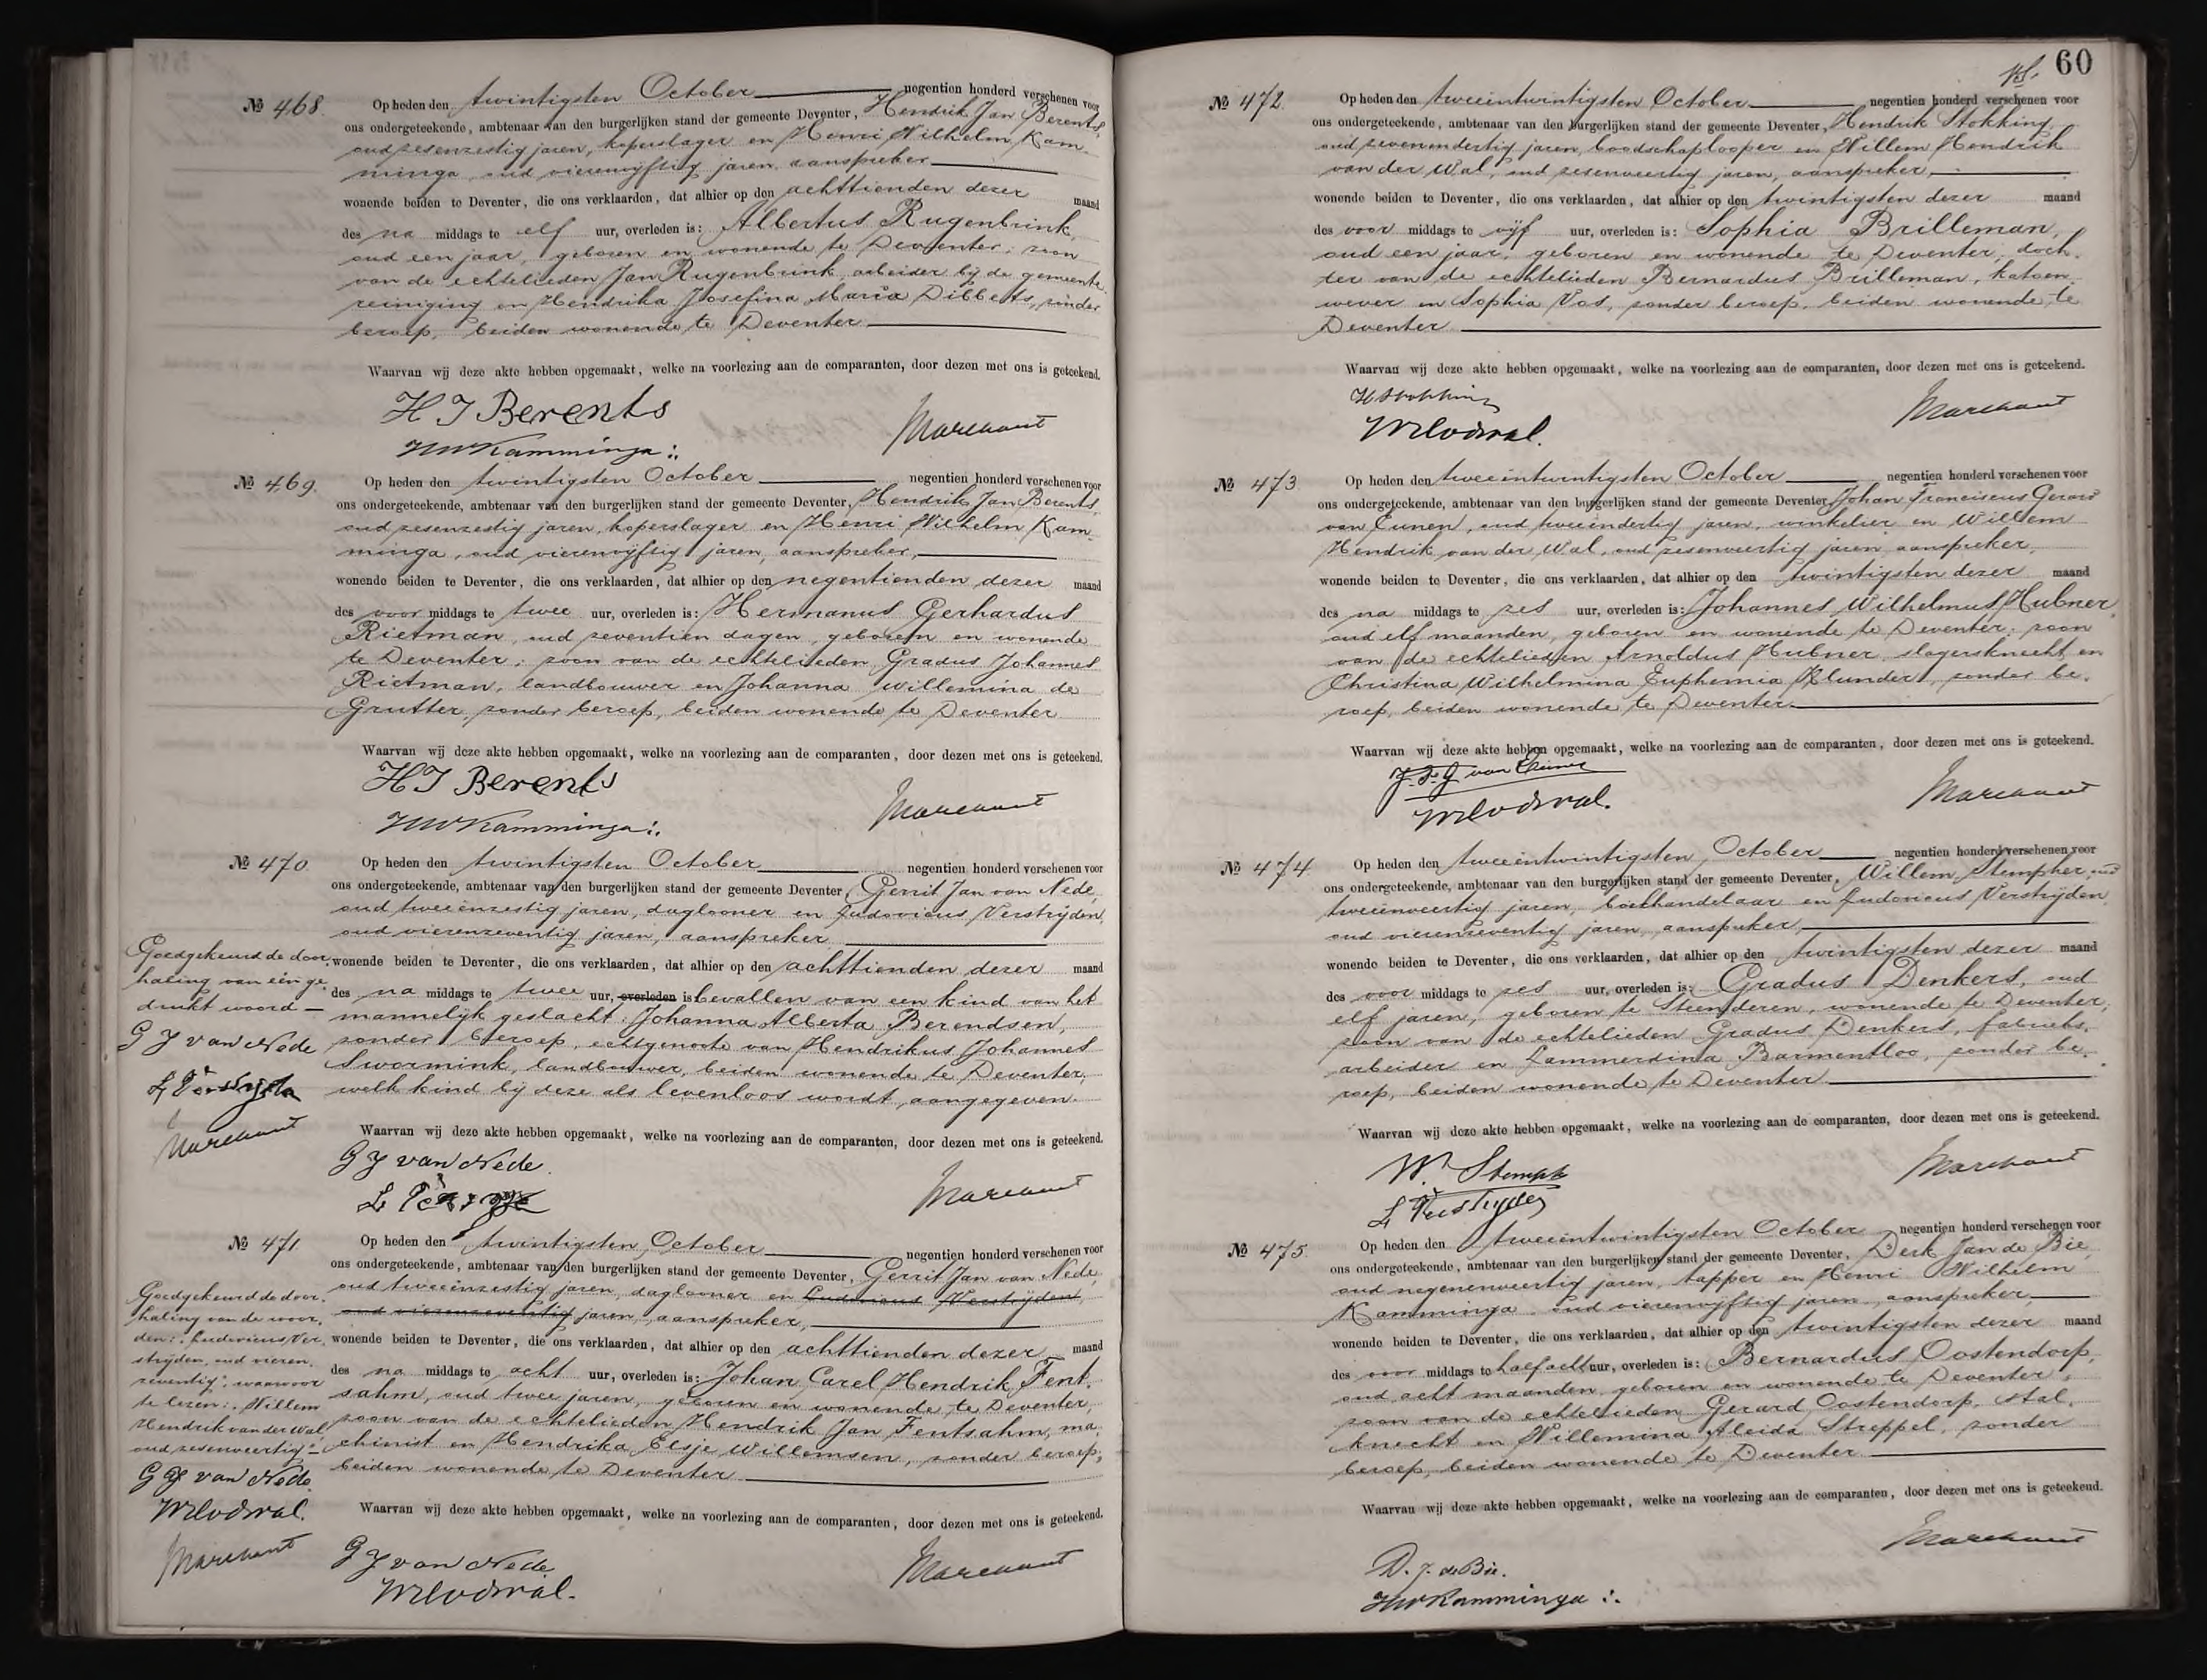 № 468.
Op heden den twintigsten October negentien honderd verschenen voor
ons ondergeteekende, ambtenaar van den burgerlijken stand der gemeente Deventer, Hendrik Jan Berents,
oud zesenzestig jaren, koperslager en Henri Wilhelm Kam-
minga, oud vierenvijftig jaren, aanspreker
wonende beiden te Deventer, die ons verklaarden, dat alhier op den achttienden dezer maand
des na middags te elf uur, overleden is: Albertus Rugenbrink,
oud een jaar, geboren en wonende te Deventer; zoon
van de echtelieden Jan Rugenbrink, arbeider bij de gemeente-
reiniging en Hendrika Josefina Maria Dibbets, zonder
beroep, beiden wonende te Deventer
Waarvan wij deze akte hebben opgemaakt, welke na voorlezing aan de comparanten, door dezen met ons is geteekend.
H J Berents
HW Kamminga
Marchant
№ 469.
Op heden den twintigsten October negentien honderd verschenen voor
ons ondergeteekende, ambtenaar van den burgerlijken stand der gemeente Deventer, Hendrik Jan Berents,
oud zesenzestig jaren, koperslager en Henri Wilhelm Kam-
minga, oud vierenvijftig jaren, aanspreker,
wonende beiden te Deventer, die ons verklaarden, dat alhier op den negentienden dezer maand
des voor middags te twee uur, overleden is: Hermanus Gerhardus
Rietman, oud zeventien dagen, geboren en wonende
te Deventer; zoon van de echtelieden Gradus Johannes
Rietman, landbouwer en Johanna Willemina de
Grutter, zonder beroep, beiden wonende te Deventer
Waarvan wij deze akte hebben opgemaakt, welke na voorlezing aan de comparanten, door dezen met ons is geteekend.
H J Berents
HW Kamminga
Marchant
№ 470.
Op heden den twintigsten October negentien honderd verschenen voor
ons ondergeteekende, ambtenaar van den burgerlijken stand der gemeente Deventer, Gerrit Jan van Nede,
oud tweeënzestig jaren, daglooner en Ludovicus Verstrijden,
oud vierenzeventig jaren, aanspreker
wonende beiden te Deventer, die ons verklaarden, dat alhier op den achttienden dezer maand
des na middags te twee uur, overleden is bevallen van een kind van het
mannelijk geslacht: Johanna Alberta Berendsen,
zonder beroep, echtgenoote van Hendrikus Johannes
Swormink, landbouwer, beiden wonende te Deventer;
welk kind bij deze als levenloos wordt aangegeven.
Waarvan wij deze akte hebben opgemaakt, welke na voorlezing aan de comparanten, door dezen met ons is geteekend.
Goedgekeurd de door-
haling van één ge-
drukt woord
G J van Nede
L Verstrijden
Marchant
G J van Nede
Marchant
№ 471.
Op heden den twintigsten October negentien honderd verschenen voor
ons ondergeteekende, ambtenaar van den burgerlijken stand der gemeente Deventer, Gerrit Jan van Nede,
oud tweeënzestig jaren, daglooner en Ludovicus Verstrijden,
oud vierenzeventig jaren, aanspreker,
wonende beiden te Deventer, die ons verklaarden, dat alhier op den achttienden dezer maand
des na middags te acht uur, overleden is: Johan Carel Hendrik Fent-
sahm, oud twee jaren, geboren en wonende te Deventer;
zoon van de echtelieden Hendrik Jan Fentsahm, ma-
chinist en Hendrika Elsje Willemsen, zonder beroep,
beiden wonende te Deventer
Waarvan wij deze akte hebben opgemaakt, welke na voorlezing aan de comparanten, door dezen met ons is geteekend.
Goedgekeurd de door-
haling van de woor-
den: "Ludovicus Ver-
strijden, oud vieren-
zeventig"; waarvoor
te lezen: "Willem
Hendrik van der Wal,
oud zesenveertig"
G J van Nede
WHvdWal.
Marchant
G J van Nede
WHvdWal.
Marchant
60
№ 472.
Op heden den tweeëntwintigsten October negentien honderd verschenen voor
ons ondergeteekende, ambtenaar van den burgerlijken stand der gemeente Deventer, Hendrik Stokking,
oud zevenendertig jaren, boodschaplooper en Willem Hendrik
van der Wal, oud zesenveertig jaren, aanspreker,
wonende beiden te Deventer, die ons verklaarden, dat alhier op den twintigsten dezer maand
des voor middags te vijf uur, overleden is: Sophia Brilleman,
oud een jaar, geboren en wonende te Deventer; doch-
ter van de echtelieden Bernardus Brilleman, katoen-
wever en Sophia Vos, zonder beroep, beiden wonende te
Deventer
Waarvan wij deze akte hebben opgemaakt, welke na voorlezing aan de comparanten, door dezen met ons is geteekend.
H Stokking
WHvdWal.
Marchant
№ 473.
Op heden den tweeëntwintigsten October negentien honderd verschenen voor
ons ondergeteekende, ambtenaar van den burgerlijken stand der gemeente Deventer, Johan Franciscus Gerard
van Eunen, oud tweeëndertig jaren, winkelier en Willem
Hendrik van der Wal, oud zesenveertig jaren, aanspreker,
wonende beiden te Deventer, die ons verklaarden, dat alhier op den twintigsten dezer maand
des na middags te zes uur, overleden is: Johannes Wilhelmus Hubner,
oud elf maanden, geboren en wonende te Deventer; zoon
van de echtelieden Arnoldus Hubner, slagersknecht en
Christina Wilhelmina Euphemia Klunder, zonder be-
roep, beiden wonende te Deventer.
Waarvan wij deze akte hebben opgemaakt, welke na voorlezing aan de comparanten, door dezen met ons is geteekend.
J. F. G van Eunen
WHvdWal.
Marchant
№ 474.
Op heden den tweeëntwintigsten October negentien honderd verschenen voor
ons ondergeteekende, ambtenaar van den burgerlijken stand der gemeente Deventer, Willem Stempher, oud
tweeënveertig jaren, boekhandelaar en Ludovicus Verstrijden,
oud vierenzeventig jaren, aanspreker,
wonende beiden te Deventer, die ons verklaarden, dat alhier op den twintigsten dezer maand
des voor middags te zes uur, overleden is: Gradus Denkers, oud
elf jaren, geboren te Steenderen, wonende te Deventer;
zoon van de echtelieden Gradus Denkers, fabrieks-
arbeider en Lammerdina Barmentloo, zonder be-
roep, beiden wonende te Deventer
Waarvan wij deze akte hebben opgemaakt, welke na voorlezing aan de comparanten, door dezen met ons is geteekend.
W. Stempher
L Verstrijden
Marchant
№ 475.
Op heden den tweeëntwintigsten October negentien honderd verschenen voor
ons ondergeteekende, ambtenaar van den burgerlijken stand der gemeente Deventer, Derk Jan de Bie,
oud negenenveertig jaren, tapper en Henri Wilhelm
Kamminga, oud vierenvijftig jaren, aanspreker,
wonende beiden te Deventer, die ons verklaarden, dat alhier op den twintigsten dezer maand
des voor middags te half acht uur, overleden is: Bernardus Oostendorp,
oud acht maanden, geboren en wonende te Deventer;
zoon van de echtelieden Gerard Oostendorp, stal-
knecht en Willemina Aleida Streppel, zonder
beroep, beiden wonende te Deventer
Waarvan wij deze akte hebben opgemaakt, welke na voorlezing aan de comparanten, door dezen met ons is geteekend.
D. J. de Bie.
HW Kamminga
Marchant